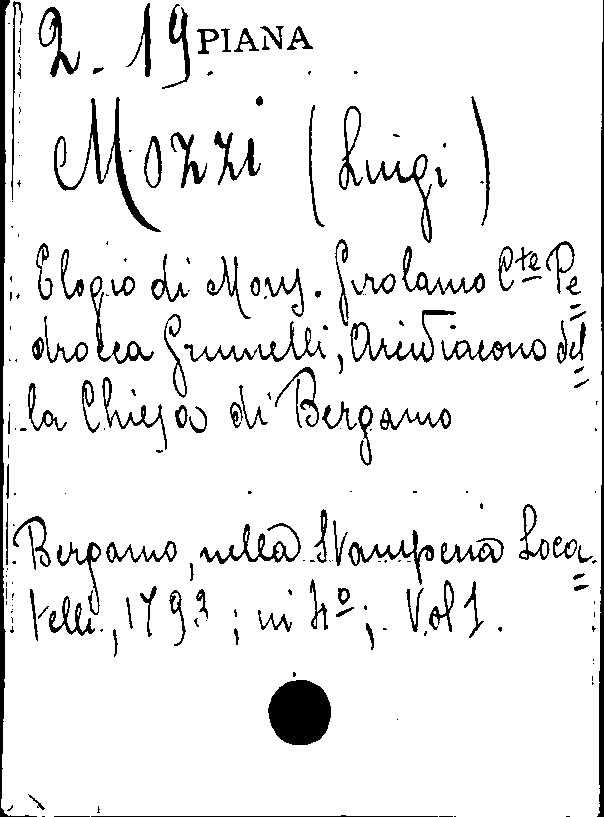 2. 19 PIANA
Mozzi (Luigi)
Elogio di Mons. Girolamo Cte Pe=
drocca Grumelli, Arcidiacono del=
la Chiesa di Bergamo
Bergamo, nella Stamperia Loca=
telli, 1793; in 4º; Vol 1.